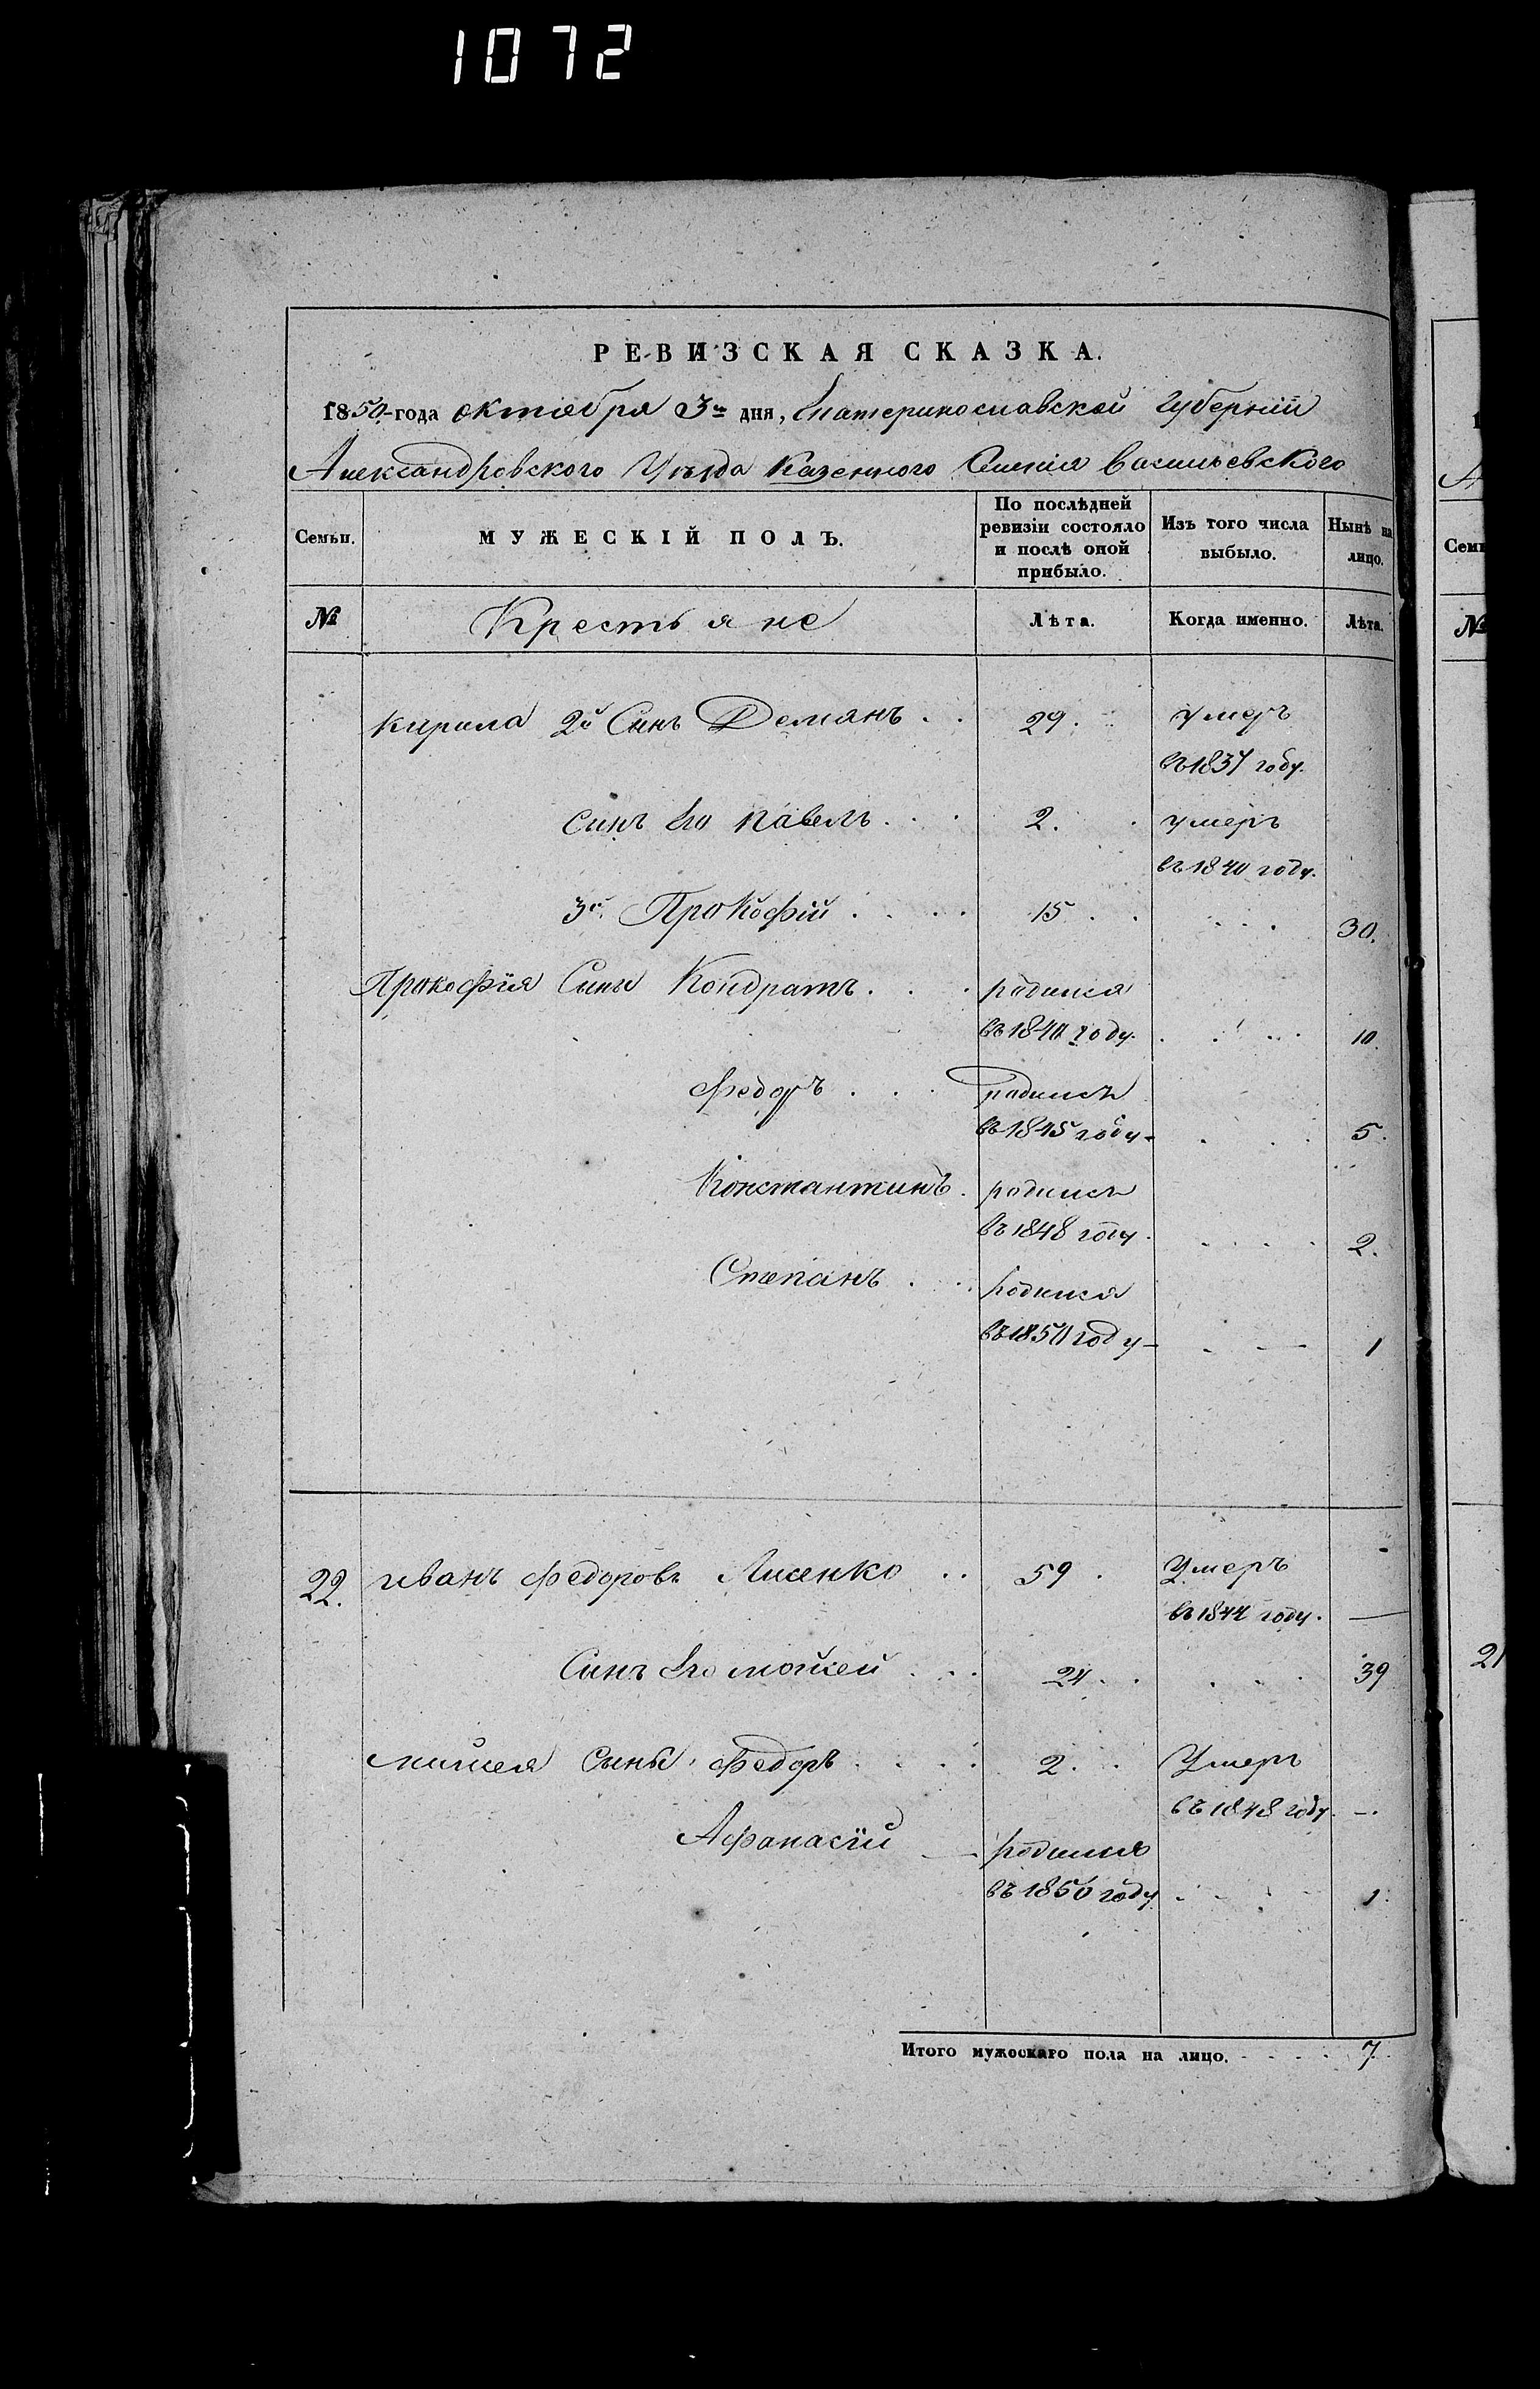 1072
РЕВИЗСКАЯ СКАЗКА.
1850-года октября 3го дня, Екатеринославской Губернии
Александровского Уѣзда Казенного Селенія Васильевского
Семьи.
МУЖЕСКІЙ ПОЛЪ.
По послѣдней
ревизіи состояло
и послѣ оной
прибыло.
Изъ того числа
выбыло.
Нынѣ на
лицо.
№
Крестьяне
Лѣта.
Когда именно.
Лѣта.
Кирила 2й Синъ Демянъ . . 29. умеръ
въ 1837 году.
синъ Его Павелъ . . . 2. умеръ
въ 1840 году.
3й Прокофій . . . . 15 . . . . . 30.
Прокофія Сины Кондратъ . . . родился
въ 1840 году. . . . . 10.
Федоръ . . . родился
въ 1845 году . . . 5.
Константинъ . родился
въ 1848 году. . . . . 2.
Степанъ . . . родился
въ 1850 году - - — 1
22. Иванъ Федоровъ Лисенко . . 59 . Умеръ
въ 1844 году. —
Синъ Его Мойсей . . . 24 . . . . . 39
Мойсея Сины Федоръ . . . . 2 . . Умеръ
въ 1848 году. —.
Афанасій — родился
въ 1850 году . . . . 1.
Итого мужескаго пола на лицо. - - - - 7.
Семьи
№
21